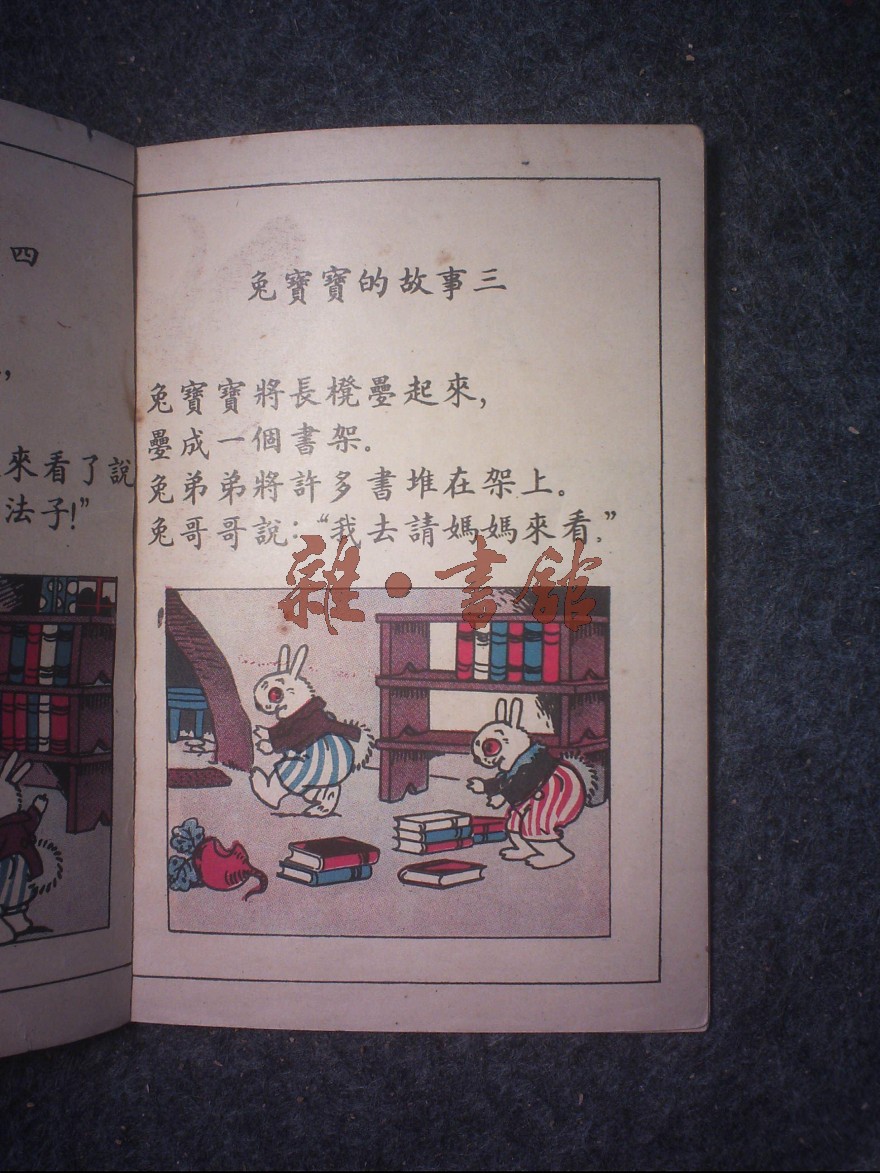 四
來看了說
法子!”
兔寶寶的故事三
兔寶寶將長櫈疊起來,
疊成一個書架。
兔弟弟將許多書堆在架上。
兔哥哥說:“我去請媽媽來看.”
雜·書館